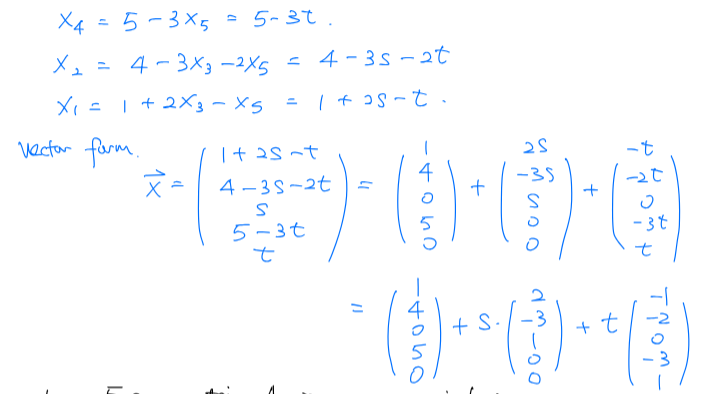 x₄ = 5 - 3x₅ = 5 - 3t.
x₂ = 4 - 3x₃ - 2x₅ = 4 - 3s - 2t
x₁ = 1 + 2x₃ - x₅ = 1 + 2s - t.
vector form.
x⃗ = (1 + 2s - t, 4 - 3s - 2t, s, 5 - 3t, t) = (1, 4, 0, 5, 0) + (2s, -3s, s, 0, 0) + (-t, -2t, 0, -3t, t)
= (1, 4, 0, 5, 0) + s · (2, -3, 1, 0, 0) + t (-1, -2, 0, -3, 1)